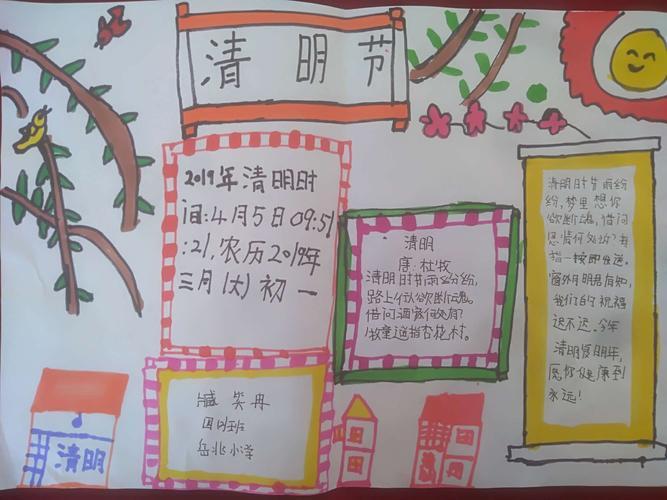 清明节
2019年清明时
间:4月5日09:51
:21,农历2019年
三月(大)初一
清明
唐:杜牧
清明时节雨纷纷,
路上行人欲断魂。
借问酒家何处有?
牧童遥指杏花村。
清明时节雨纷
纷,梦里想你
欲断魂,借问
思情何处纷?拇
指一按即发送。
窗外月明是有知,
我们的祝福
迟不迟。今年
清明复明年,
愿你健康到
永远!
笑冉
四班
岳北小学
清明